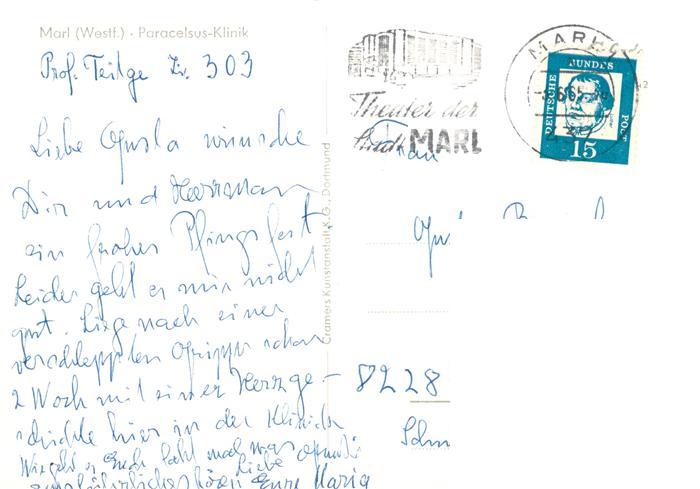 Marl (Westf.) · Paracelsus-Klinik
Prof. Teitge Zi. 303
Liebe wünsche
Dir und Herrman
ein frohes Pfingsfest.
Leider geht es mir nicht
gut. Liege nach einer
verschleppten Grippe schon
2 Woch mit einer Herzge-
schichte hier in der Klinick
Wie geht es Euch laßt mal was
ausführliches hören Liebe Eure Maria
Cramers Kunstanstalt K.G., Dortmund
Theater der
Stadt MARL
MARL
DEUTSCHE BUNDES POST
15
Frau
8228